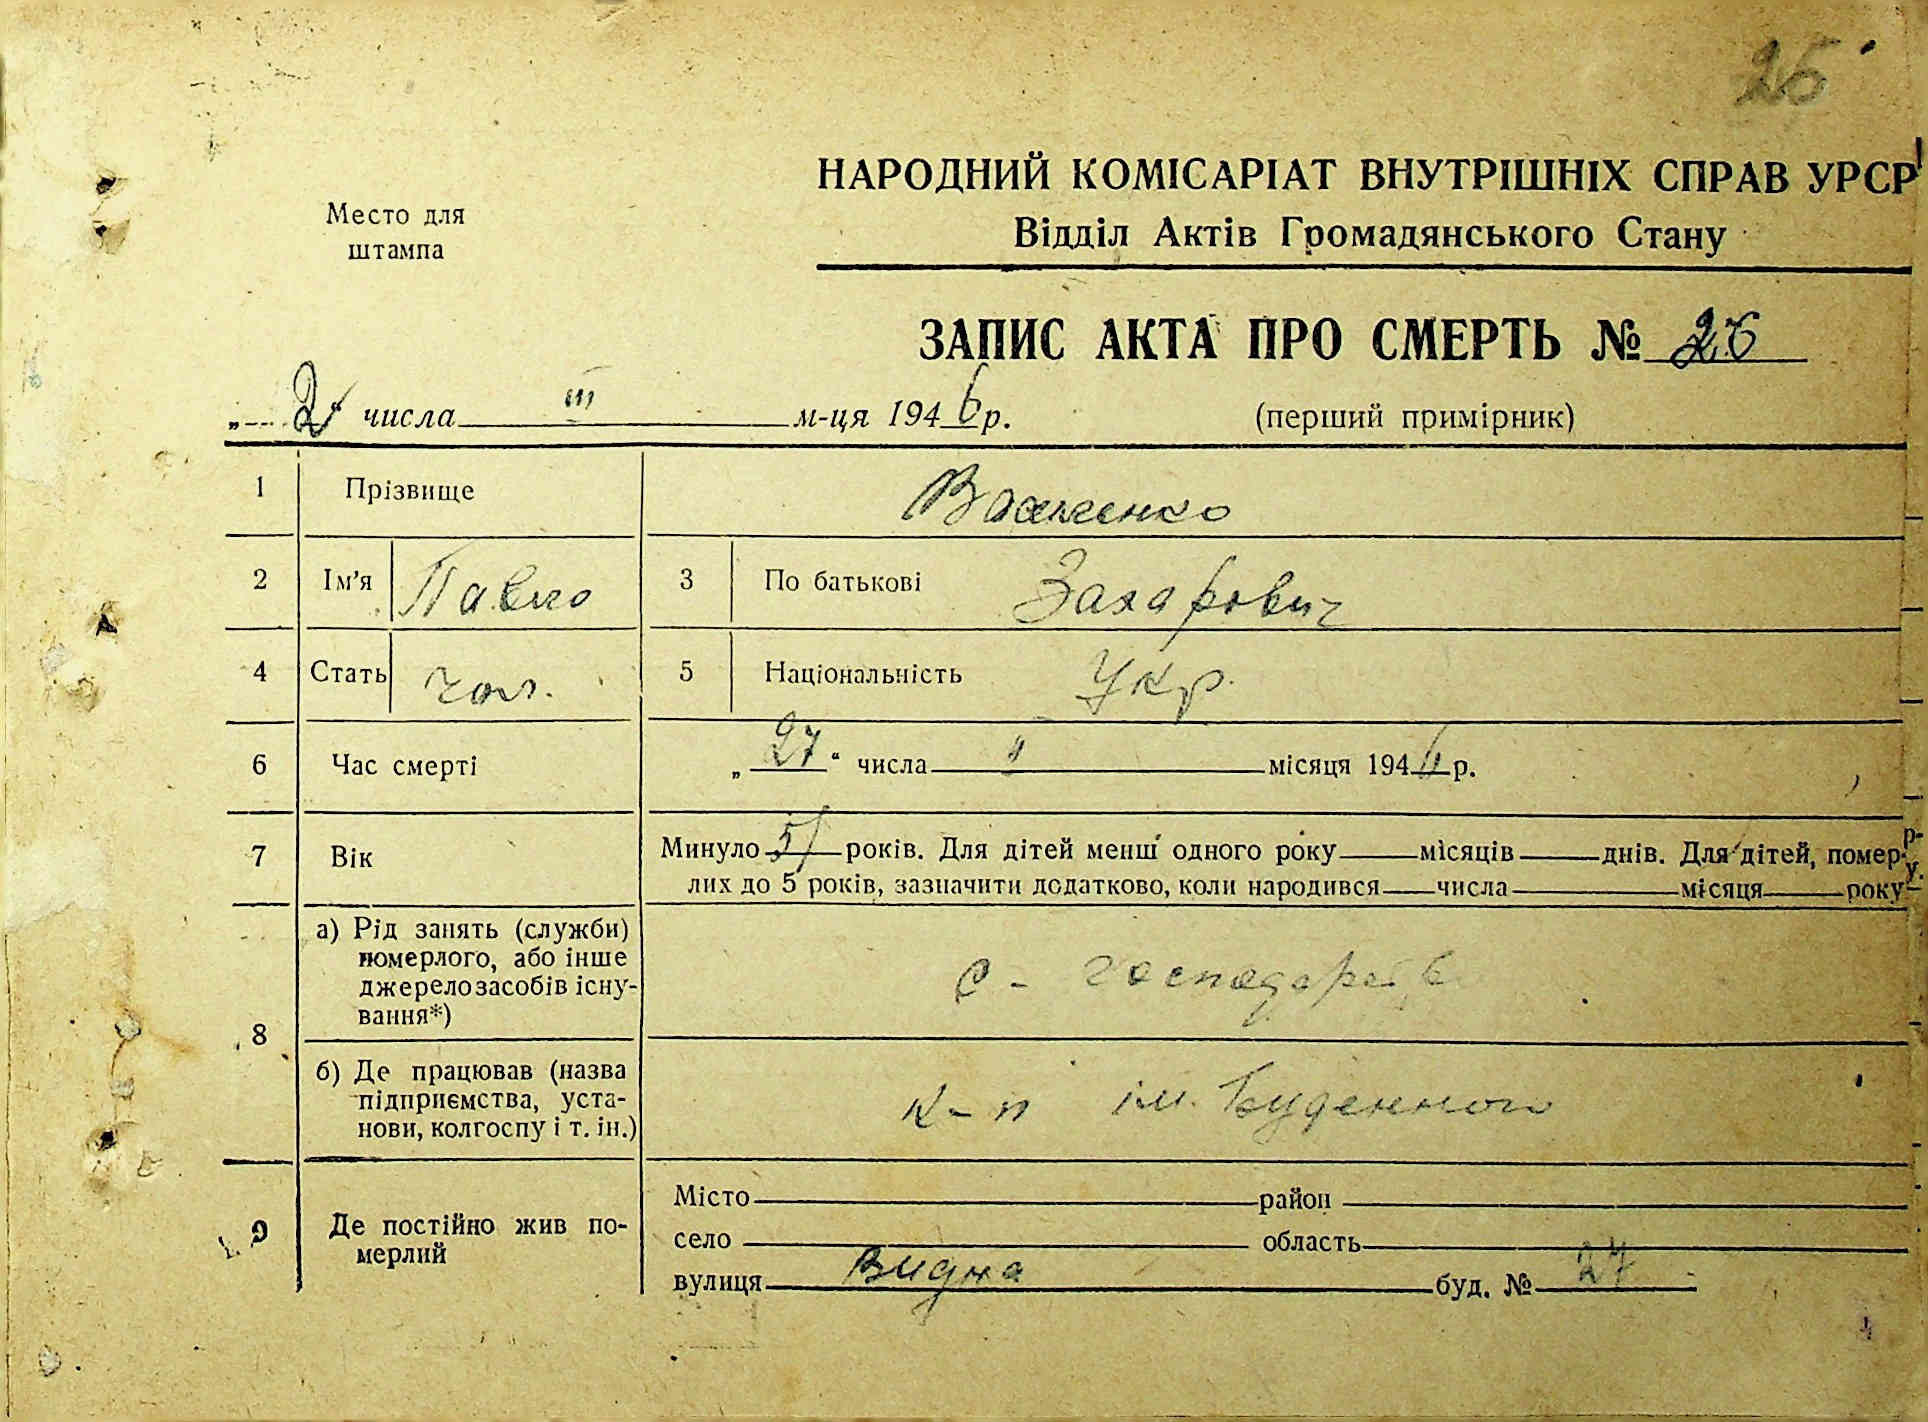 26
НАРОДНИЙ КОМІСАРІАТ ВНУТРІШНІХ СПРАВ УРСР
Место для штампа
Відділ Актів Громадянського Стану
ЗАПИС АКТА ПРО СМЕРТЬ № 26
„ 2 числа III м-ця 1946 р. (перший примірник)
1 Прізвище Важненко
2 Ім'я Павло 3 По батькові Захарович
4 Стать чол. 5 Національність Укр.
6 Час смерті „27“ числа II місяця 1946 р.
7 Вік Минуло 51 років. Для дітей менш одного року місяців днів. Для дітей, помер-
лих до 5 років, зазначити додатково, коли народився числа місяця року
8 а) Рід занять (служби)
померлого, або інше
джерело засобів існу-
вання*)
с-господарств
б) Де працював (назва
підприємства, уста-
нови, колгоспу і т. ін.)
к-п ім. Буденного
9 Де постійно жив по-
мерлий
Місто район
село область
вулиця Видна буд. № 27